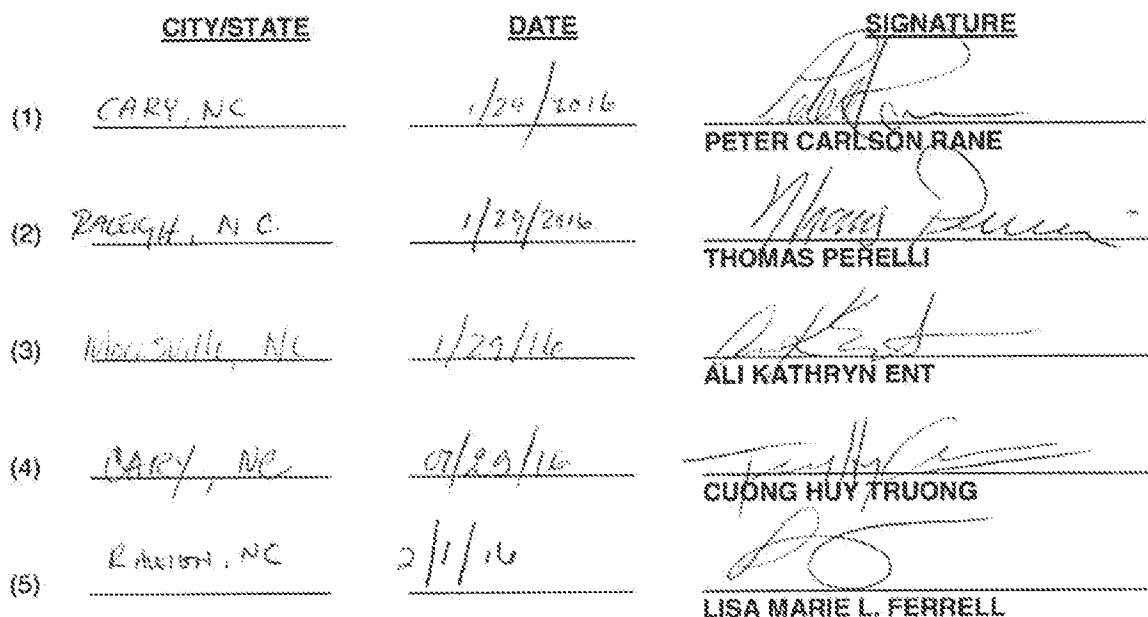 CITY/STATE DATE SIGNATURE
(1) CARY, NC 1/29/2016
PETER CARLSON RANE
(2) RALEIGH, NC 1/29/2016
THOMAS PERELLI
(3) Morrisville, NC 1/29/16
ALI KATHRYN ENT
(4) CARY, NC 01/29/16
CUONG HUY TRUONG
(5) NC 2/1/16
LISA MARIE L. FERRELL